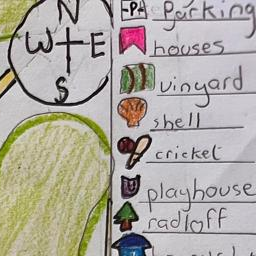 N
W E
S
Parking
houses
vinyard
shell
cricket
playhouse
radloff